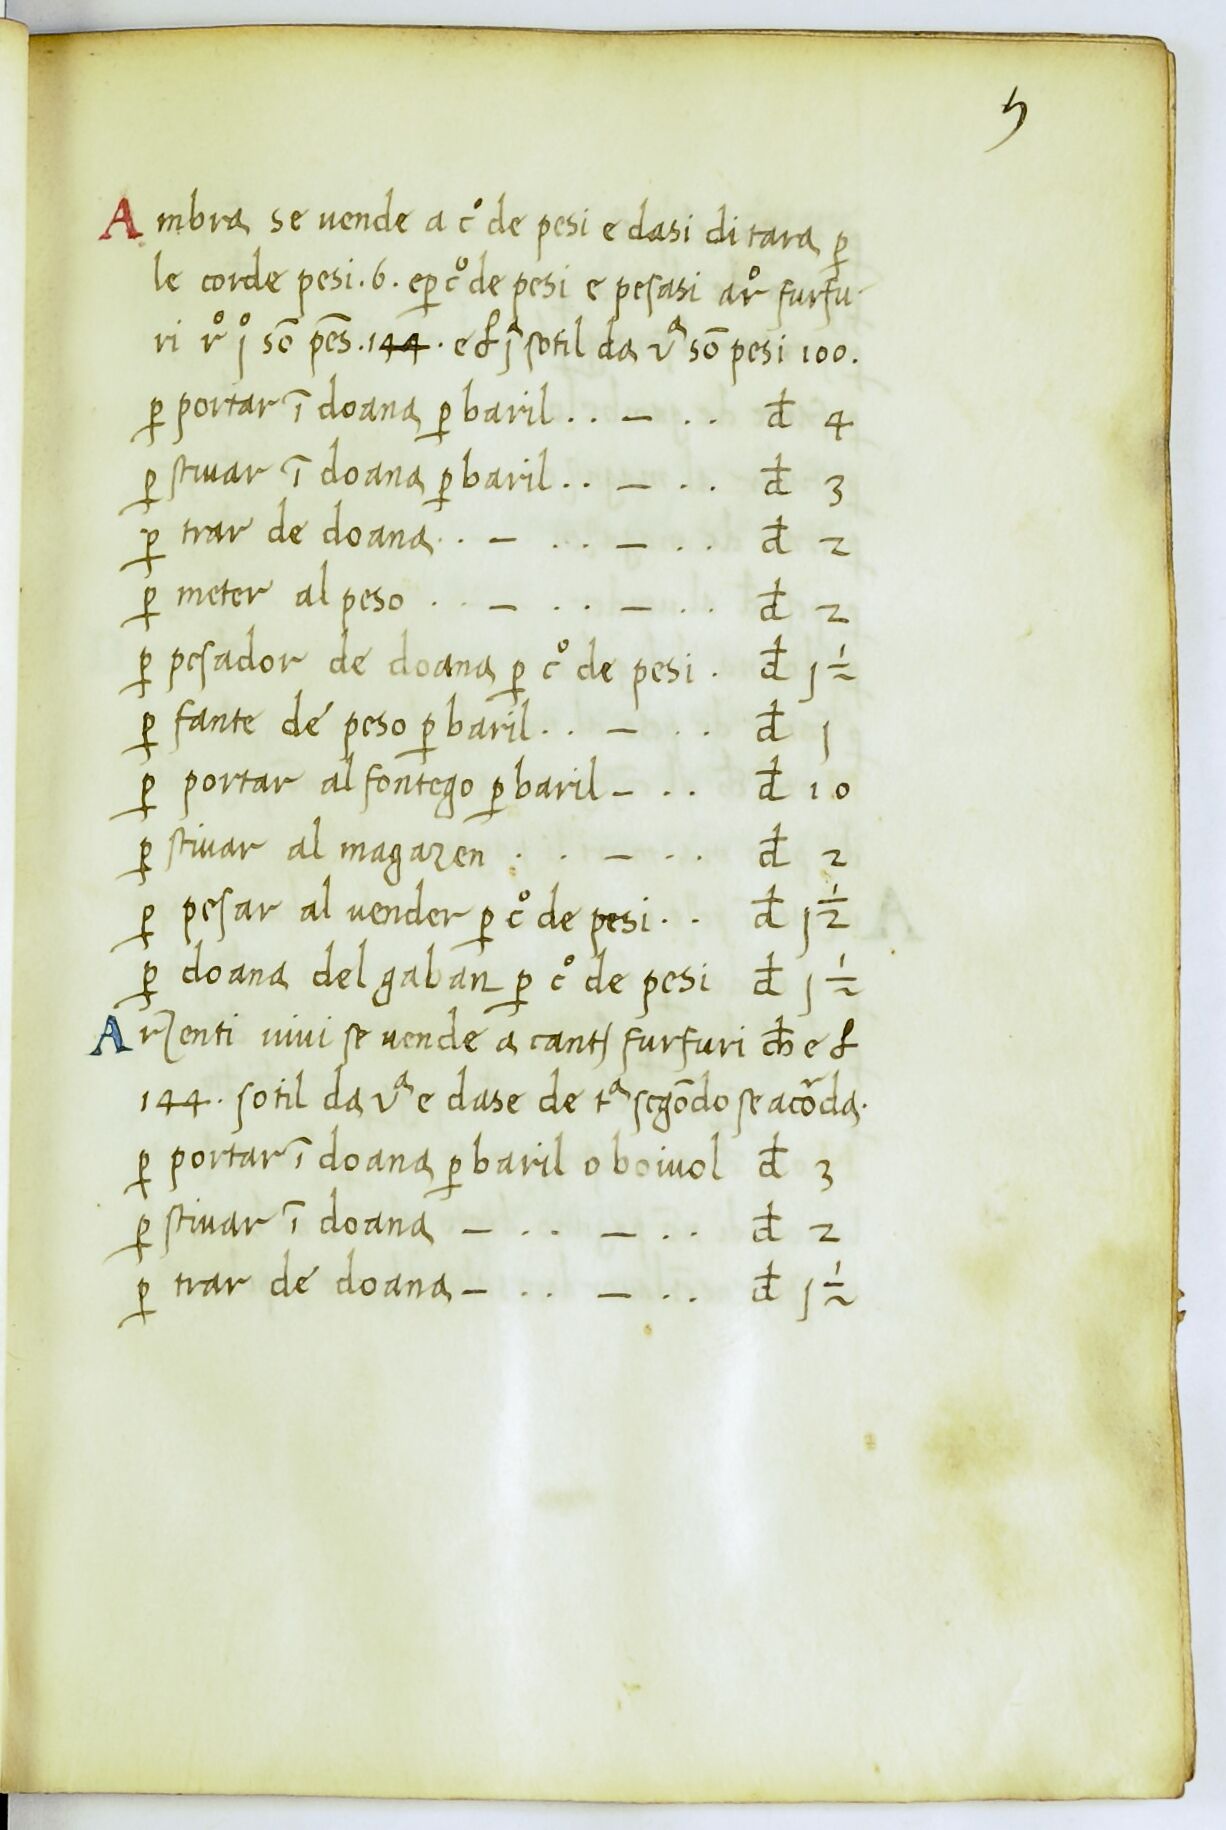 5
Ambra se uende a c° de pesi e dasi di tara ꝑ
le corde pesi .6. e ꝑ c° de pesi e pesasi a r° furfu
ri r° j° sō pēs .144. e £ jª sotil da vª sō pesi 100.
ꝑ portar ī doana ꝑ baril . . — . . đ 4
ꝑ stiuar ī doana ꝑ baril . . — . . đ 3
ꝑ trar de doana . . — . . — . . đ 2
ꝑ meter al peso . . — . . — . . đ 2
ꝑ pesador de doana ꝑ c° de pesi . đ j ½
ꝑ fante de peso ꝑ baril . . — . . đ j
ꝑ portar al fontego ꝑ baril — . . đ 10
ꝑ stiuar al magazen . . — . . đ 2
ꝑ pesar al uender ꝑ c° de pesi . . đ j ½
ꝑ doana del gaban ꝑ c° de pesi đ j ½
Arzenti uiui se uende a cantj furfuri ch̄ e £
144. sotil da vª e dase de tª segōdo se acōda.
ꝑ portar ī doana ꝑ baril o boiuol đ 3
ꝑ stiuar ī doana — . . — . . đ 2
ꝑ trar de doana — . . — . . đ j ½